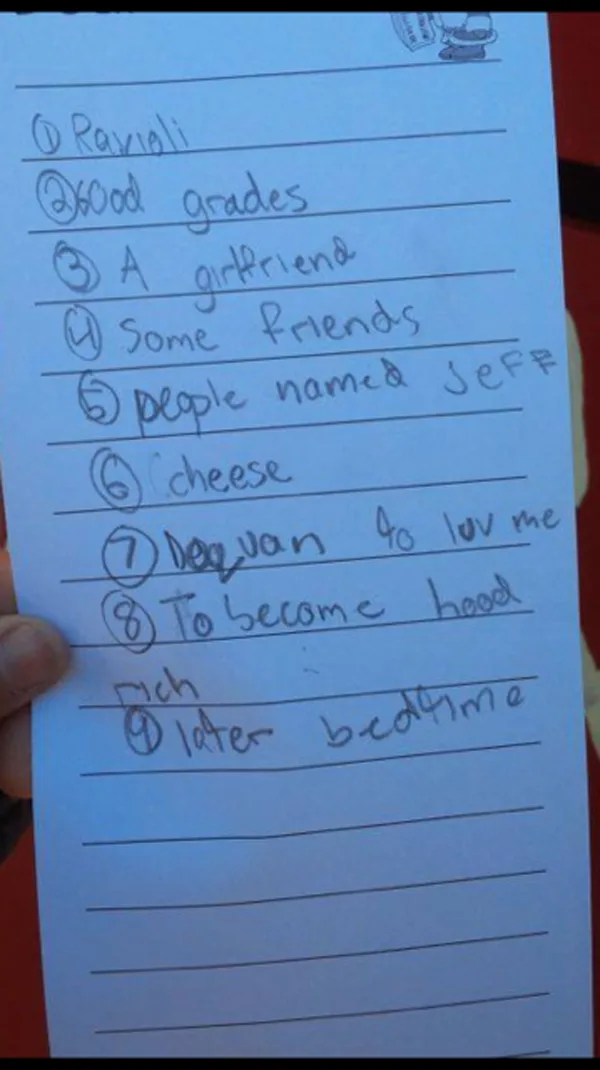 ① Ravioli
② Good grades
③ A girlfriend
④ Some friends
⑤ people named Jeff
⑥ cheese
⑦ Dequan to luv me
⑧ To become hood
rich
⑨ later bedtime